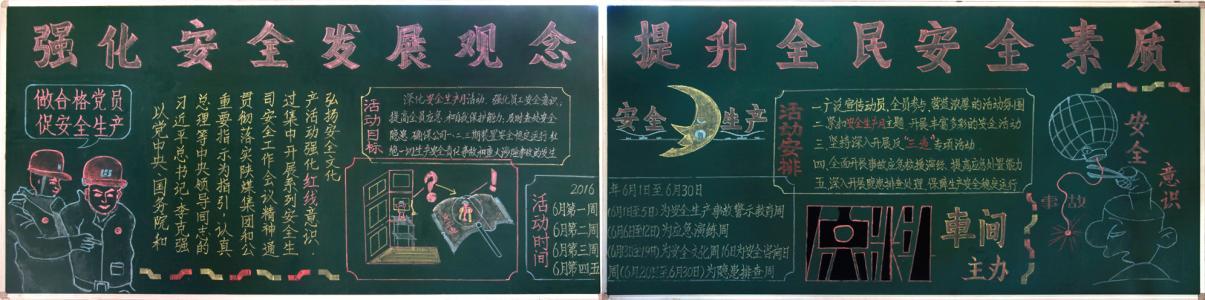 强化安全发展观念
提升全民安全素质
做合格党员
促安全生产
以党中央、国务院和
习近平总书记、李克强
总理等中央领导同志的
重要指示为指引，认真
贯彻落实陕煤集团和公
司安全工作会议精神，通
过集中开展系列安全生
产活动，强化红线意识，
弘扬安全文化
活动目标
深化安全生产月活动，强化员工安全意识，
提高全员应急、和自救保护能力，及时查处安全
隐患，确保公司一二三期装置安全稳定运行，杜
绝一切生产安全责任事故和重大涉险事故的发生
活动时间
2016年6月1日至6月30日
6月第一周(6月1日至5日)为安全生产事故警示教育周
6月第二周(6月6日至12日)为应急演练周
6月第三周(6月13日至19日)为安全文化周16日为安全咨询日
6月第四五周(6月20日至6月30日)为隐患排查周
安全生产
活动安排
一.广泛宣传动员,全员参与,营造浓厚的活动氛围
二.紧扣安全生产月主题,开展丰富多彩的安全活动
三.坚持深入开展反"三违"专项活动
四.全面开展事故应急救援演练,提高应急处置能力
五.深入开展隐患排查处理,保障生产安全稳定运行
车间
主办
安全
意识
事故